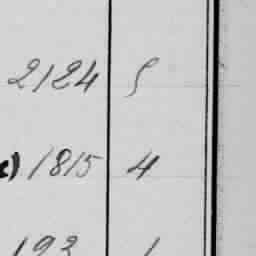 2124 5
) 1815 4
193 1